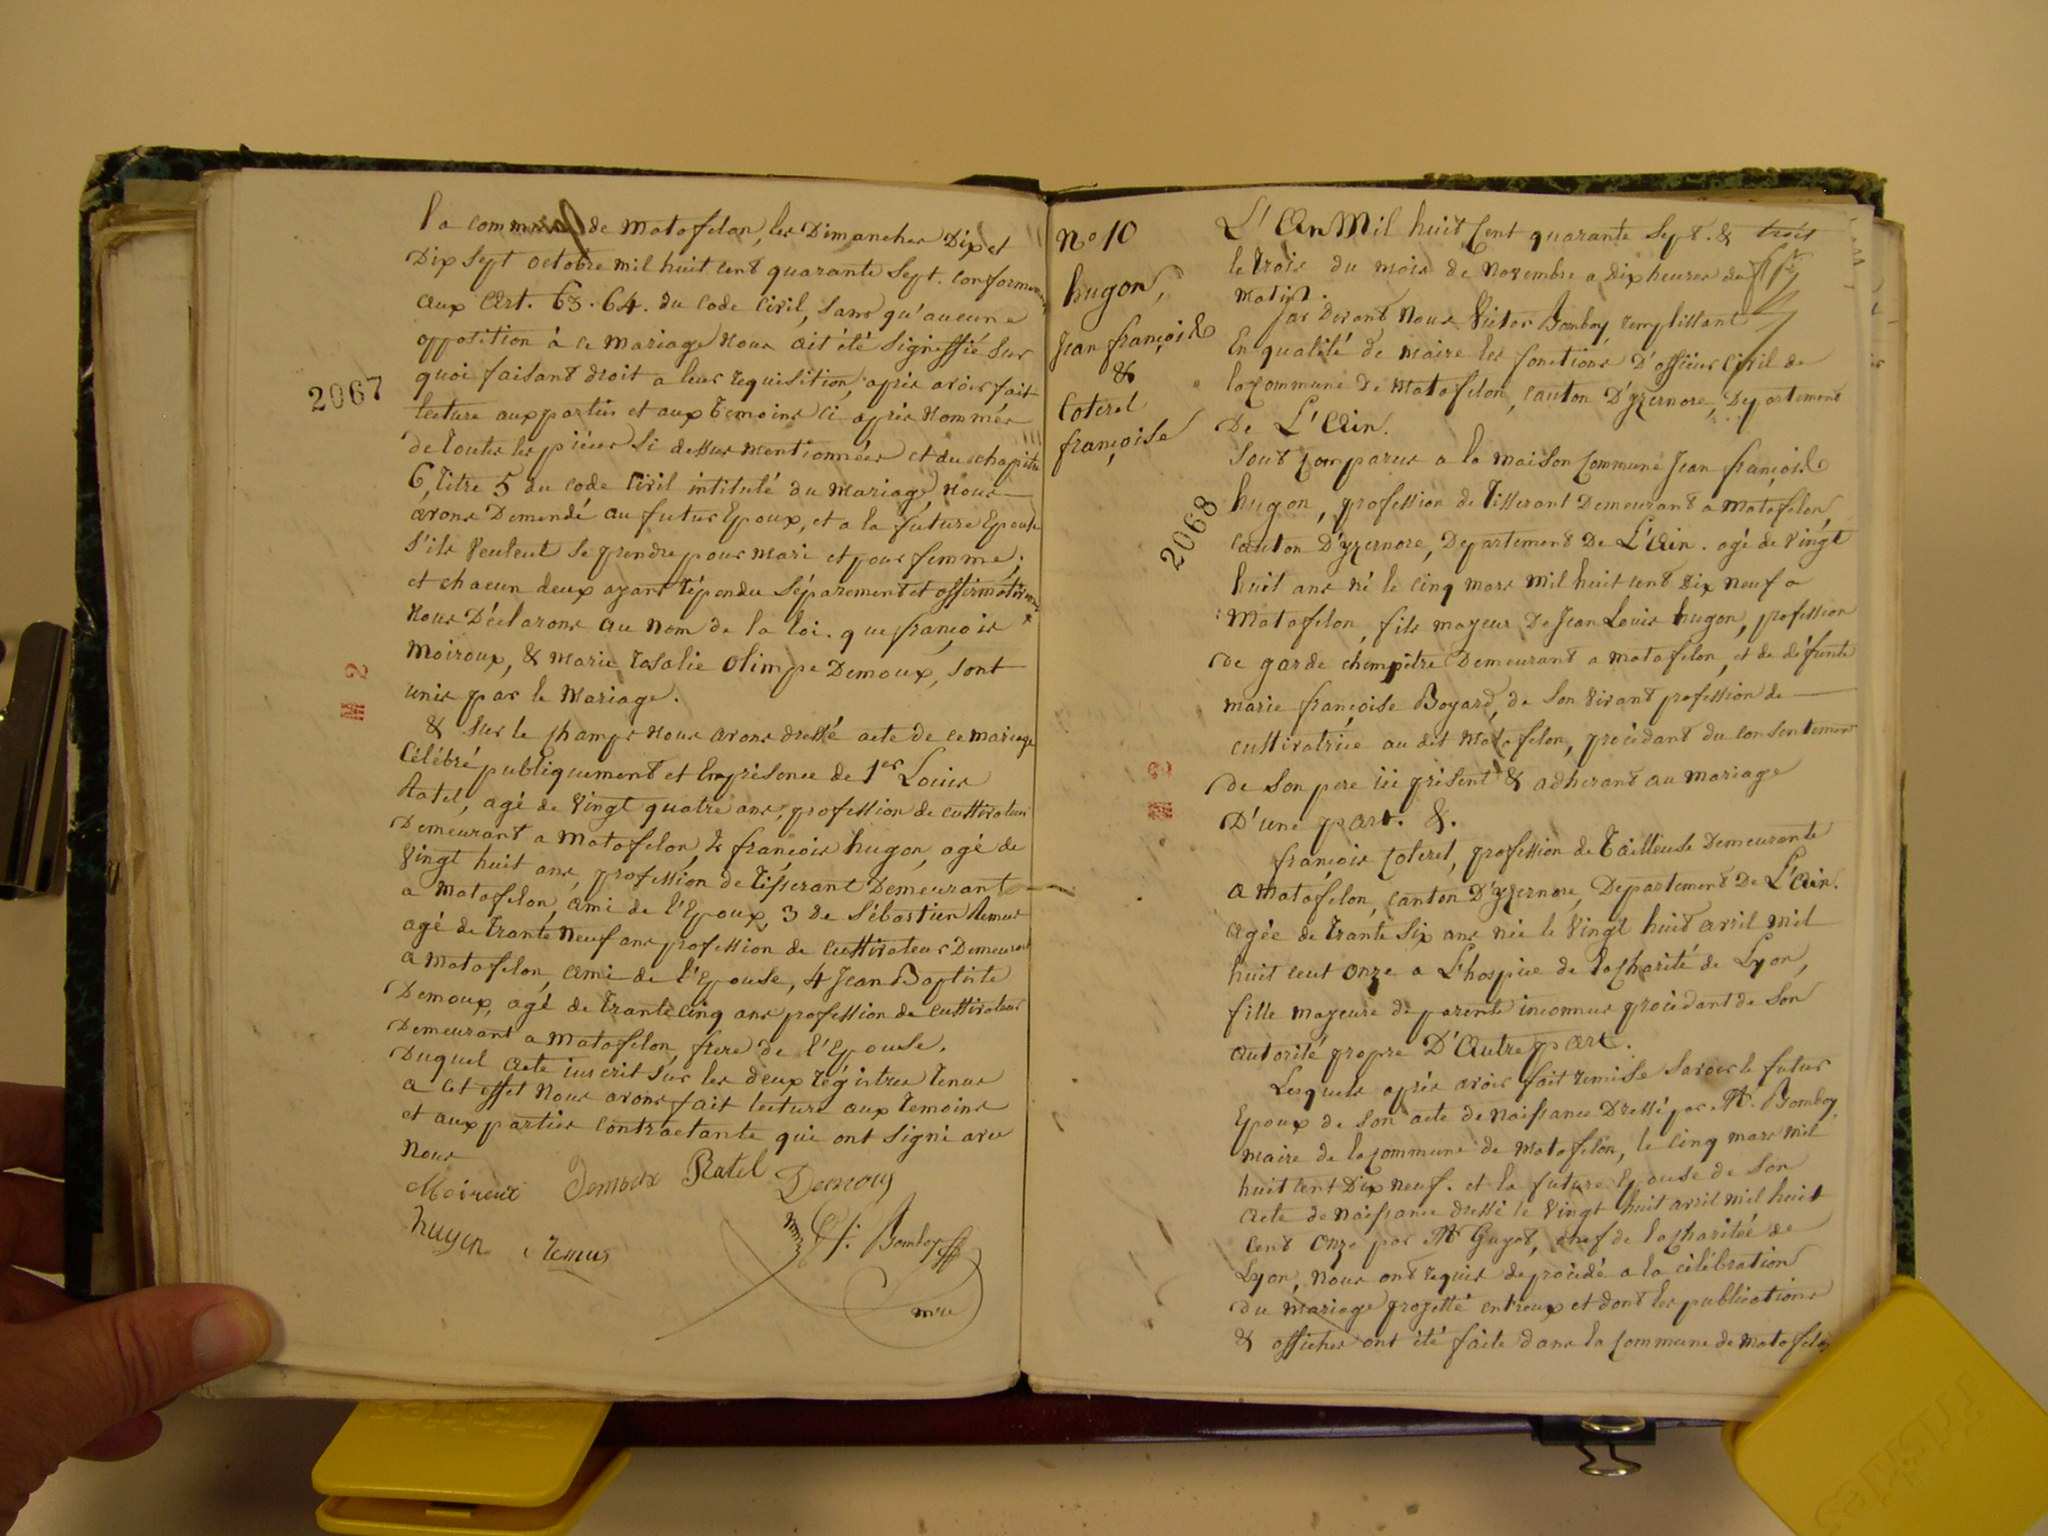 la commune de Matafelon, les Dimanches Dix et
Dix sept octobre mil huit cent quarante sept. conformement
aux Art. 63. 64. du code Civil, sans qu'aucune
opposition à ce mariage nous ait été signiffié sur
quoi faisant droit a leur requisition, après avoir fait
lecture aux parties et aux temoins ci après nommés
de toutes les pièces si dessus mentionnées et du chapitre
6, titre 5 du code Civil intitulé du mariage, nous
avons Demendé au futur Epoux, et a la future Epouse
s'ils veulent se prendre pour mari et pour femme;
et chacun deux ayant répondu séparement et affirmativement
nous Déclarons au nom de la loi. que françois
Moiroux, & marie rosalie Olimpe Demoux, sont
unis par le Mariage.
& sur le champs nous avons dressé acte de ce mariage
Célébré publiquement et En présence de 1er Louis
Ratel, agé de vingt quatre ans, profession de cultivateur
Demeurant a Matafelon, 2 françois hugon, agé de
vingt huit ans, profession de tisserant Demeurant
a Matafelon, ami de l'Epoux, 3 de Sébastien Remus
agé de trante neuf ans profession de cultivateur Demeurant
a Matafelon, ami de l'Epouse, 4 Jean Baptiste
Demoux, agé de trante cinq ans profession de cultivateur
Demeurant a Matafelon, frere de l'Epouse.
Duquel Acte inscrit sur les deux régistres tenus
a cet effet Nous avons fait lecture aux temoins
et aux parties contractante qui ont signé avec
Nous
Moiroux Demoux Ratel Demoux
hugon Remus
V. Bomboy
mre
2067
M 2
n° 10
hugon,
Jean françois
&
Coterel
françoise
2068
M 3
L'An Mil huit Cent quarante Sept. & trois
le trois du mois de Novembre a dix heures du
Matin.
Par Devant Nous Victor Bomboy remplissant
En qualité de maire les fonctions D'officier Civil de
la commune de Matafelon, canton D'yzernore, Departement
De L'Ain.
Sont comparus a la maison commune Jean françois
hugon, profession de tisserant Demeurant a Matafelon
canton D'yzernore, Departement De L'Ain. agé de vingt
huit ans né le cinq mars mil huit cent dix neuf a
Matafelon, fils mayeur De Jean Louis hugon, profession
de garde chempêtre Demeurant a Matafelon, et de défunte
marie françoise Boyard, de son vivant profession de
cultivatrice au dit Matafelon, procédant du consentement
de son pere ici présent & adherant au mariage
D'une part. &.
françois Coterel, profession de tailleuse Demeurante
a Matafelon, canton D'yzernore, Departement De L'Ain.
agée de trante six ans née le vingt huit avril mil
huit cent onze a L'hospice de la charité de Lyon,
fille mayeure de parents inconnus procédant de son
autorité propre D'Autre part.
Lesquels après avoir fait remise savoir le futur
Epoux de son acte de naissance Dressé par Mr. Bomboy
maire de la commune de Matafelon, le cinq mars mil
huit cent Dix neuf. et la future Epouse de son
acte de naissance dressé le vingt huit avril mil huit
cent Onze par Mr Guyot, chef de la charitée de
Lyon, nous ont requis de procédé a la célébration
du mariage projetté entreux et dont les publications
& affiches ont été faite dans la commune de Matafelon